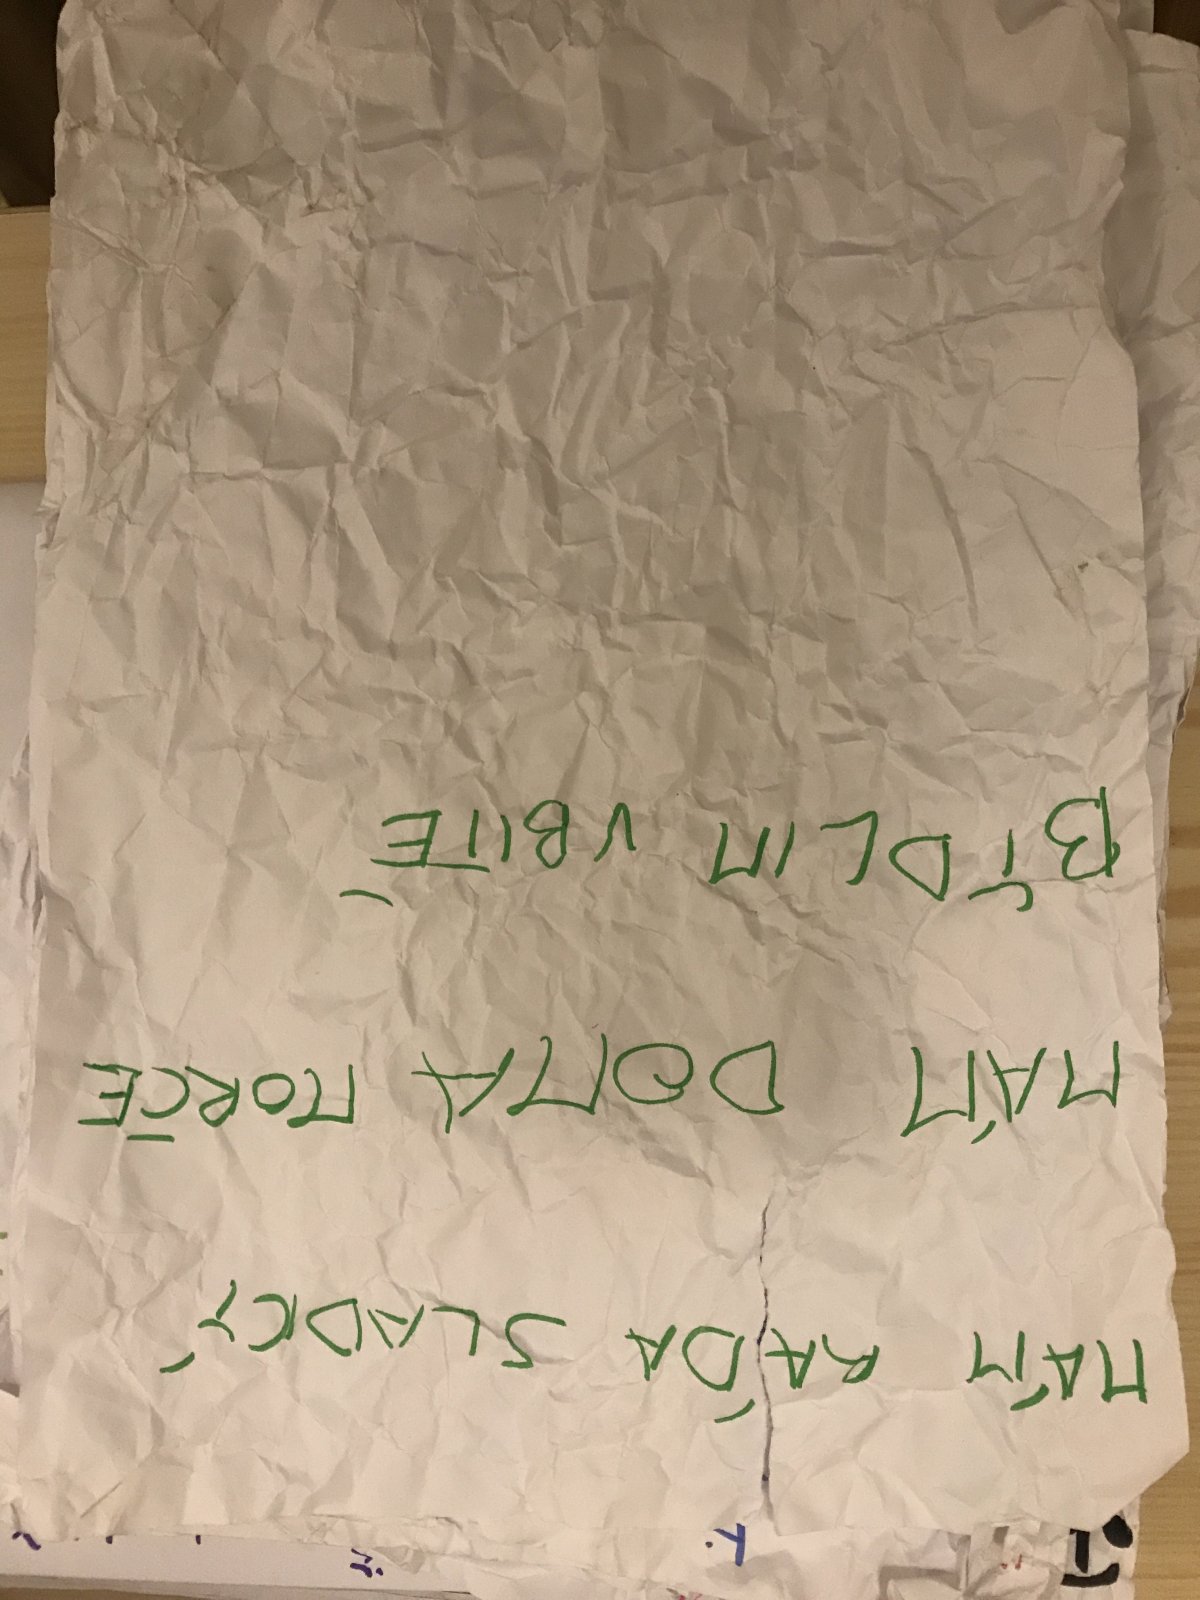 MÁM RÁDA SLADKÝ
MÁM DOMA MORČE
BÍDLIM VBITÉ